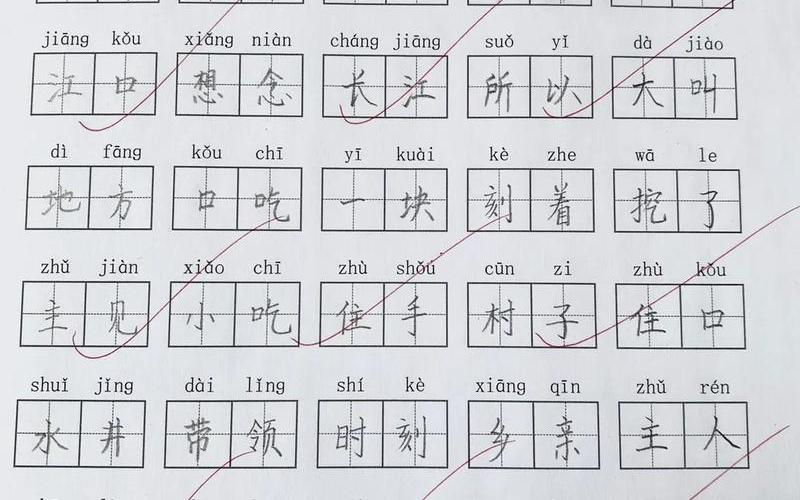 jiāng kǒu xiǎng niàn cháng jiāng suǒ yǐ dà jiào
江口 想念 长江 所以 大叫
dì fāng kǒu chī yī kuài kè zhe wā le
地方 口吃 一块 刻着 挖了
zhǔ jiàn xiǎo chī zhù shǒu cūn zi zhù kǒu
主见 小吃 住手 村子 住口
shuǐ jǐng dài lǐng shí kè xiāng qīn zhǔ rén
水井 带领 时刻 乡亲 主人